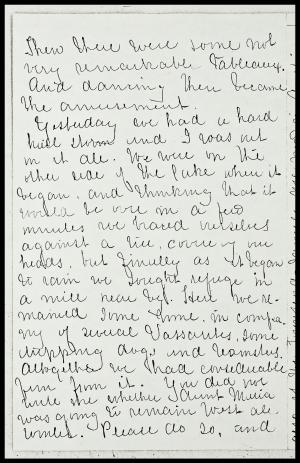 Then there were some not
very remarkable Tableaux.
And dancing then became
the amusement.
Yesterday we had a hard
hail storm and I was out
in it all. We were on the
other side of the lake when it
began, and thinking that it
would be over in a few
minutes we braced ourselves
against a tree, covering our
heads, but finally as it began
to rain we sought refuge in
a mill near by. Here we re-
mained some time, in compa-
ny of several Vassarites, some
dogs and
Altogether we had considerable
fun from it. You did not
write me whether Aunt Maria
was going to remain West all
winter. Please do so, and